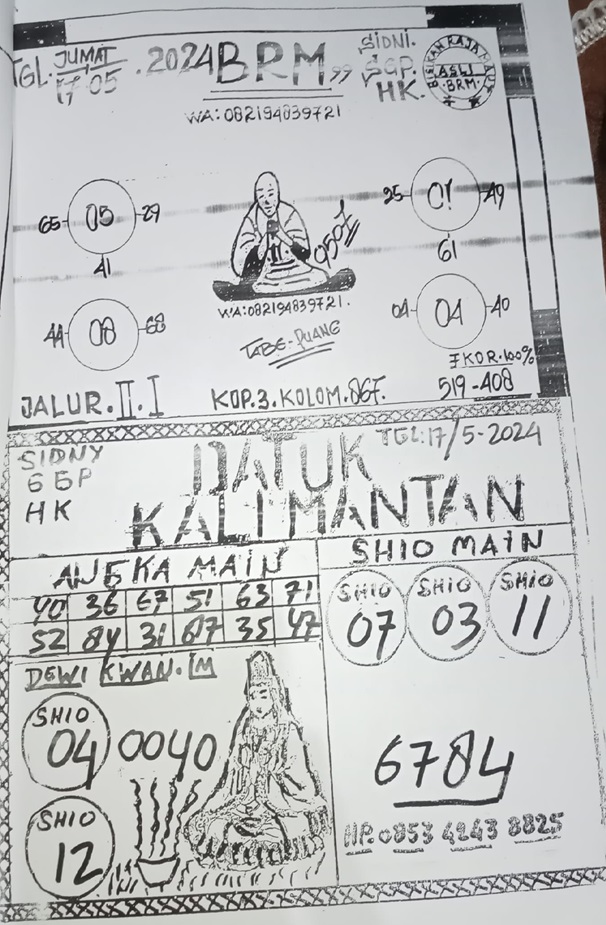 TGL. JUMAT
17-05 .2024 BRM 99
SIDNI.
SGP.
HK.
BISIKAN RAJA MAUT
ASLI
BRM
WA: 082194839721
65 05 29
41
25 01 49
61
44 08 68
04 04 40
0507
WA:082194839721.
TABE-PUANG
EKOR.100%
519-408
JALUR.II.I KOP.3.KOLOM.867.
SIDNY
GBP
HK
DATUK
KALIMANTAN
TGL:17/5-2024
ANGKA MAIN
40 36 67 51 63 71
52 84 31 67 35 47
SHIO MAIN
SHIO 07 SHIO 03 SHIO 11
DEWI KWAN.IM
SHIO 04 0040
SHIO 12
6784
HP.0853 4243 8825